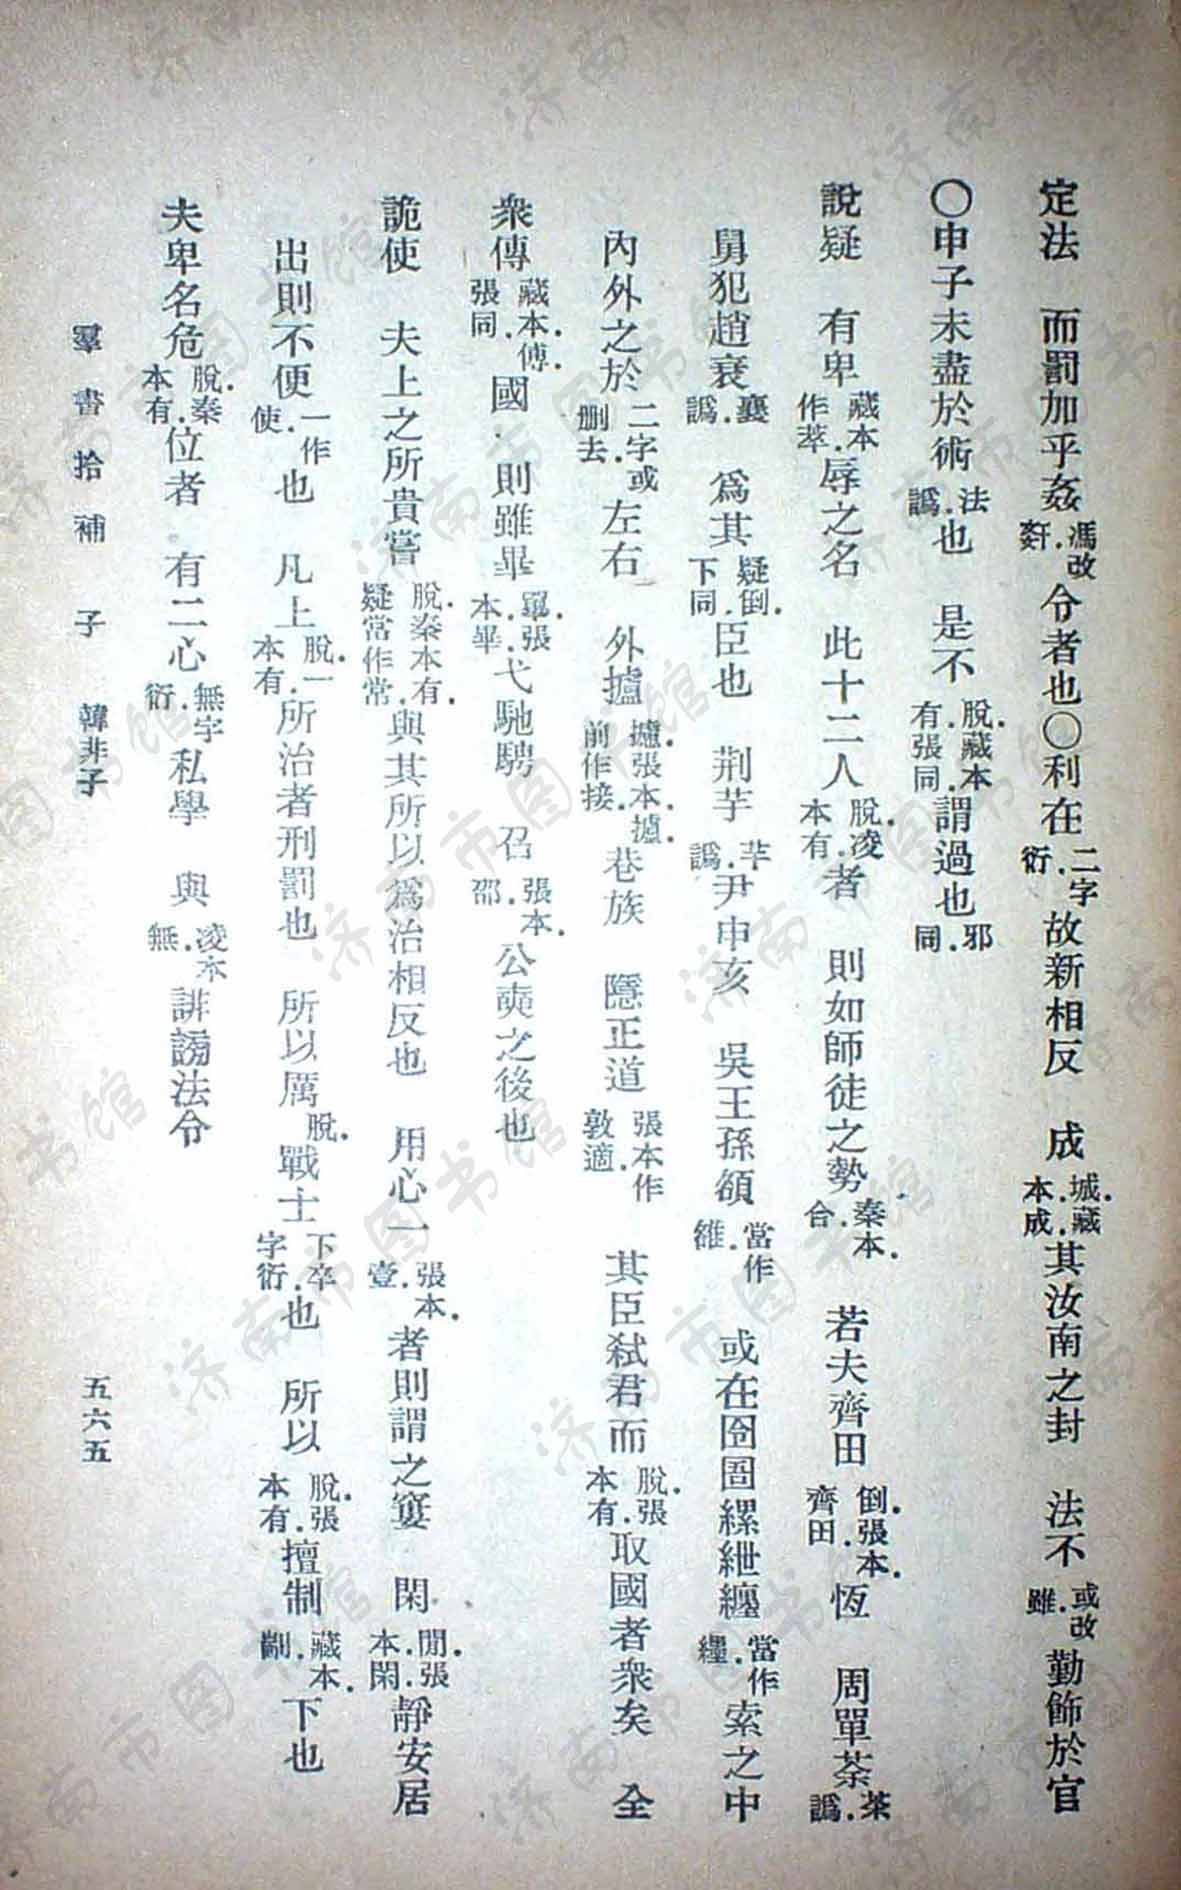 定法　而罰加乎姦馮改姧.令者也〇利在二字衍.故新相反　成城.藏本.成.其汝南之封　法不或改雖.勤飾於官
〇申子未盡於術法譌.也　是不脫.藏本有.張同.謂過也邪同.
說疑　有卑藏本作萃.辱之名　此十二人脫.凌本有.者　則如師徒之勢秦本.合.　若夫齊田倒.張本.齊田.恆　周單荼茶譌.
舅犯趙衰襄譌.　爲其疑倒.下同.臣也　荆芋芊譌.尹申亥　吳王孫頟當作雒.　或在囹圄縲紲纏當作纆.索之中
內外之於二字或刪去.左右　外攎攄.張本.攎.前作接.巷族　隱正道張本作敦適.　其臣弒君而脫.張本有.取國者衆矣　全
衆傳藏本.傅.張同.國　則雖畢單.張本.畢.弋馳騁　召張本.邵.公奭之後也
詭使　夫上之所貴嘗脫.秦本有.疑當作常.與其所以爲治相反也　用心一張本.壹.者則謂之窶　閑閒.張本.閑.靜安居
出則不便一作使.也　凡上脫.一本有.所治者刑罰也　所以厲脫.戰士下卒字衍.也　所以脫.張本有.擅制藏本.劘.下也
夫卑名危脫.秦本有.位者　有二心無字衍.私學　與凌本無.誹謗法令
羣書拾補　子　韓非子　五六五